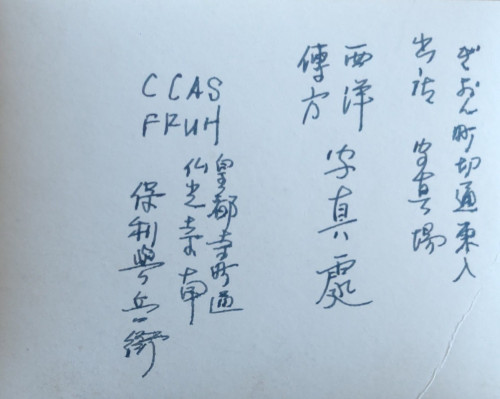 ぎおん町切通東入
写真場
西洋
傳方
写真處
CCAS
FRUH
皇都寺町通
仏光寺南
保利與兵衛